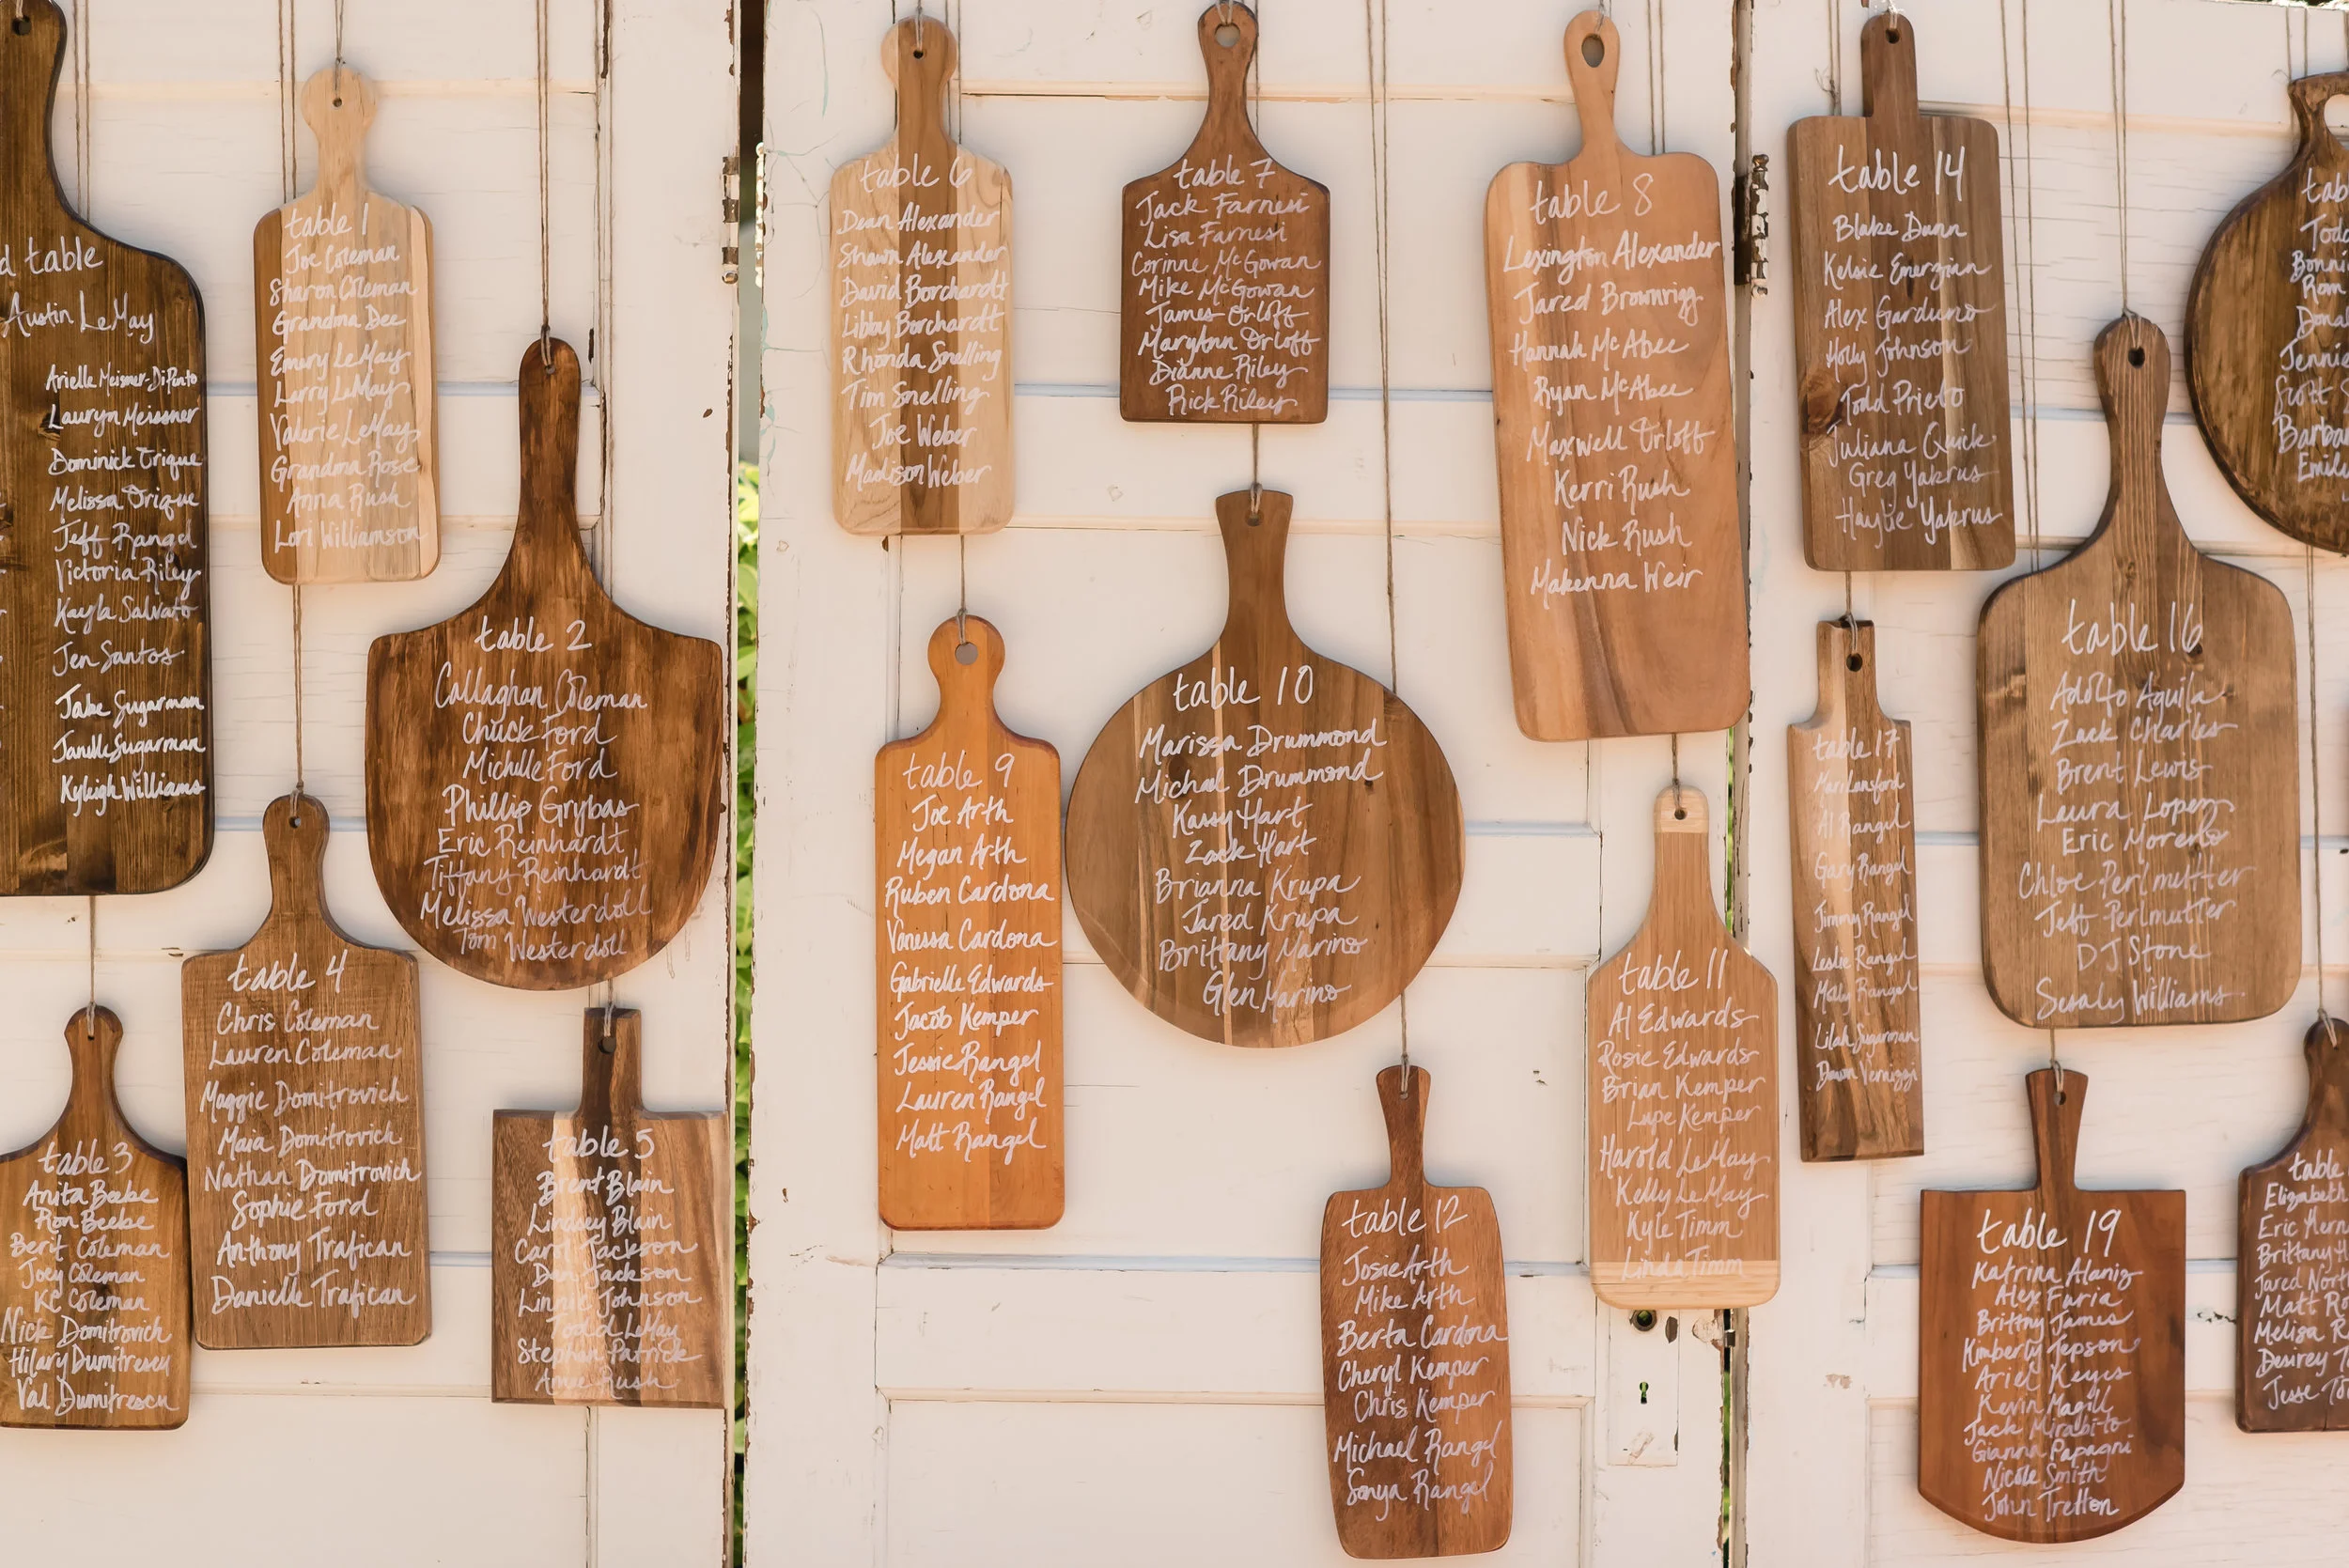 d table
Austin LeMay
Arielle Meisner-DiPinto
Lauryn Meissner
Dominick Orique
Melissa Orique
Jeff Rangel
Victoria Riley
Kayla Salvato
Jen Santos
Jake Sugarman
Janelle Sugarman
Kyleigh Williams
table 1
Joe Coleman
Sharon Coleman
Grandma Dee
Emery LeMay
Larry LeMay
Valerie LeMay
Grandma Rose
Anna Rush
Lori Williamson
table 2
Callaghan Coleman
Chuck Ford
Michelle Ford
Phillip Grybas
Eric Reinhardt
Tiffany Reinhardt
Melissa Westerdoll
Tom Westerdoll
table 3
Anita Beebe
Ron Beebe
Berit Coleman
Joey Coleman
KC Coleman
Nick Domitrovich
Hilary Dumitrescu
Val Dumitrescu
table 4
Chris Coleman
Lauren Coleman
Maggie Domitrovich
Maia Domitrovich
Nathan Domitrovich
Sophie Ford
Anthony Trafican
Danielle Trafican
table 5
Brent Blain
Lindsey Blain
Carol Jackson
Dan Jackson
Linnie Johnson
Todd LeMay
Stephan Patrick
Amee Rush
table 6
Dean Alexander
Shawn Alexander
David Borchardt
Libby Borchardt
Rhonda Snelling
Tim Snelling
Joe Weber
Madison Weber
table 7
Jack Farnesi
Lisa Farnesi
Corinne McGowan
Mike McGowan
James Orloff
MaryAnn Orloff
Dianne Riley
Rick Riley
table 8
Lexington Alexander
Jared Brownrigg
Hannah McAbee
Ryan McAbee
Maxwell Orloff
Kerri Rush
Nick Rush
Makenna Weir
table 9
Joe Arth
Megan Arth
Ruben Cardona
Vanessa Cardona
Gabrielle Edwards
Jacob Kemper
Jessie Rangel
Lauren Rangel
Matt Rangel
table 10
Marissa Drummond
Michael Drummond
Kassy Hart
Zack Hart
Brianna Krupa
Jared Krupa
Brittany Marino
Glen Marino
table 11
Al Edwards
Rosie Edwards
Brian Kemper
Lupe Kemper
Harold LeMay
Kelly LeMay
Kyle Timm
Linda Timm
table 12
Josie Arth
Mike Arth
Berta Cardona
Cheryl Kemper
Chris Kemper
Michael Rangel
Sonya Rangel
table 14
Blake Dunn
Kelsie Emerzian
Alex Garduno
Holly Johnson
Todd Prieto
Juliana Quick
Greg Yakrus
Haylie Yakrus
table 17
Mari Lansford
Al Rangel
Gary Rangel
Jimmy Rangel
Leslie Rangel
Molly Rangel
Lilah Sugarman
Dawn Vernizzi
table 16
Adolfo Aguila
Zack Charles
Brent Lewis
Laura Lopez
Eric Moreno
Chloe Perlmutter
Jeff Perlmutter
DJ Stone
Seraly Williams
table 19
Katrina Alaniz
Alex Furia
Brittny James
Kimberly Jepson
Ariel Keyes
Kevin Magill
Jack Mirabito
Gianna Papagni
Nicole Smith
John Tretton
tab
Todd
Bonni
Rom
Dona
Jenni
Scott
Barba
Emil
table
Elizabeth
Eric Her
Brittany H
Jared Nor
Matt R
Melisa R
Desirey T
Jesse To